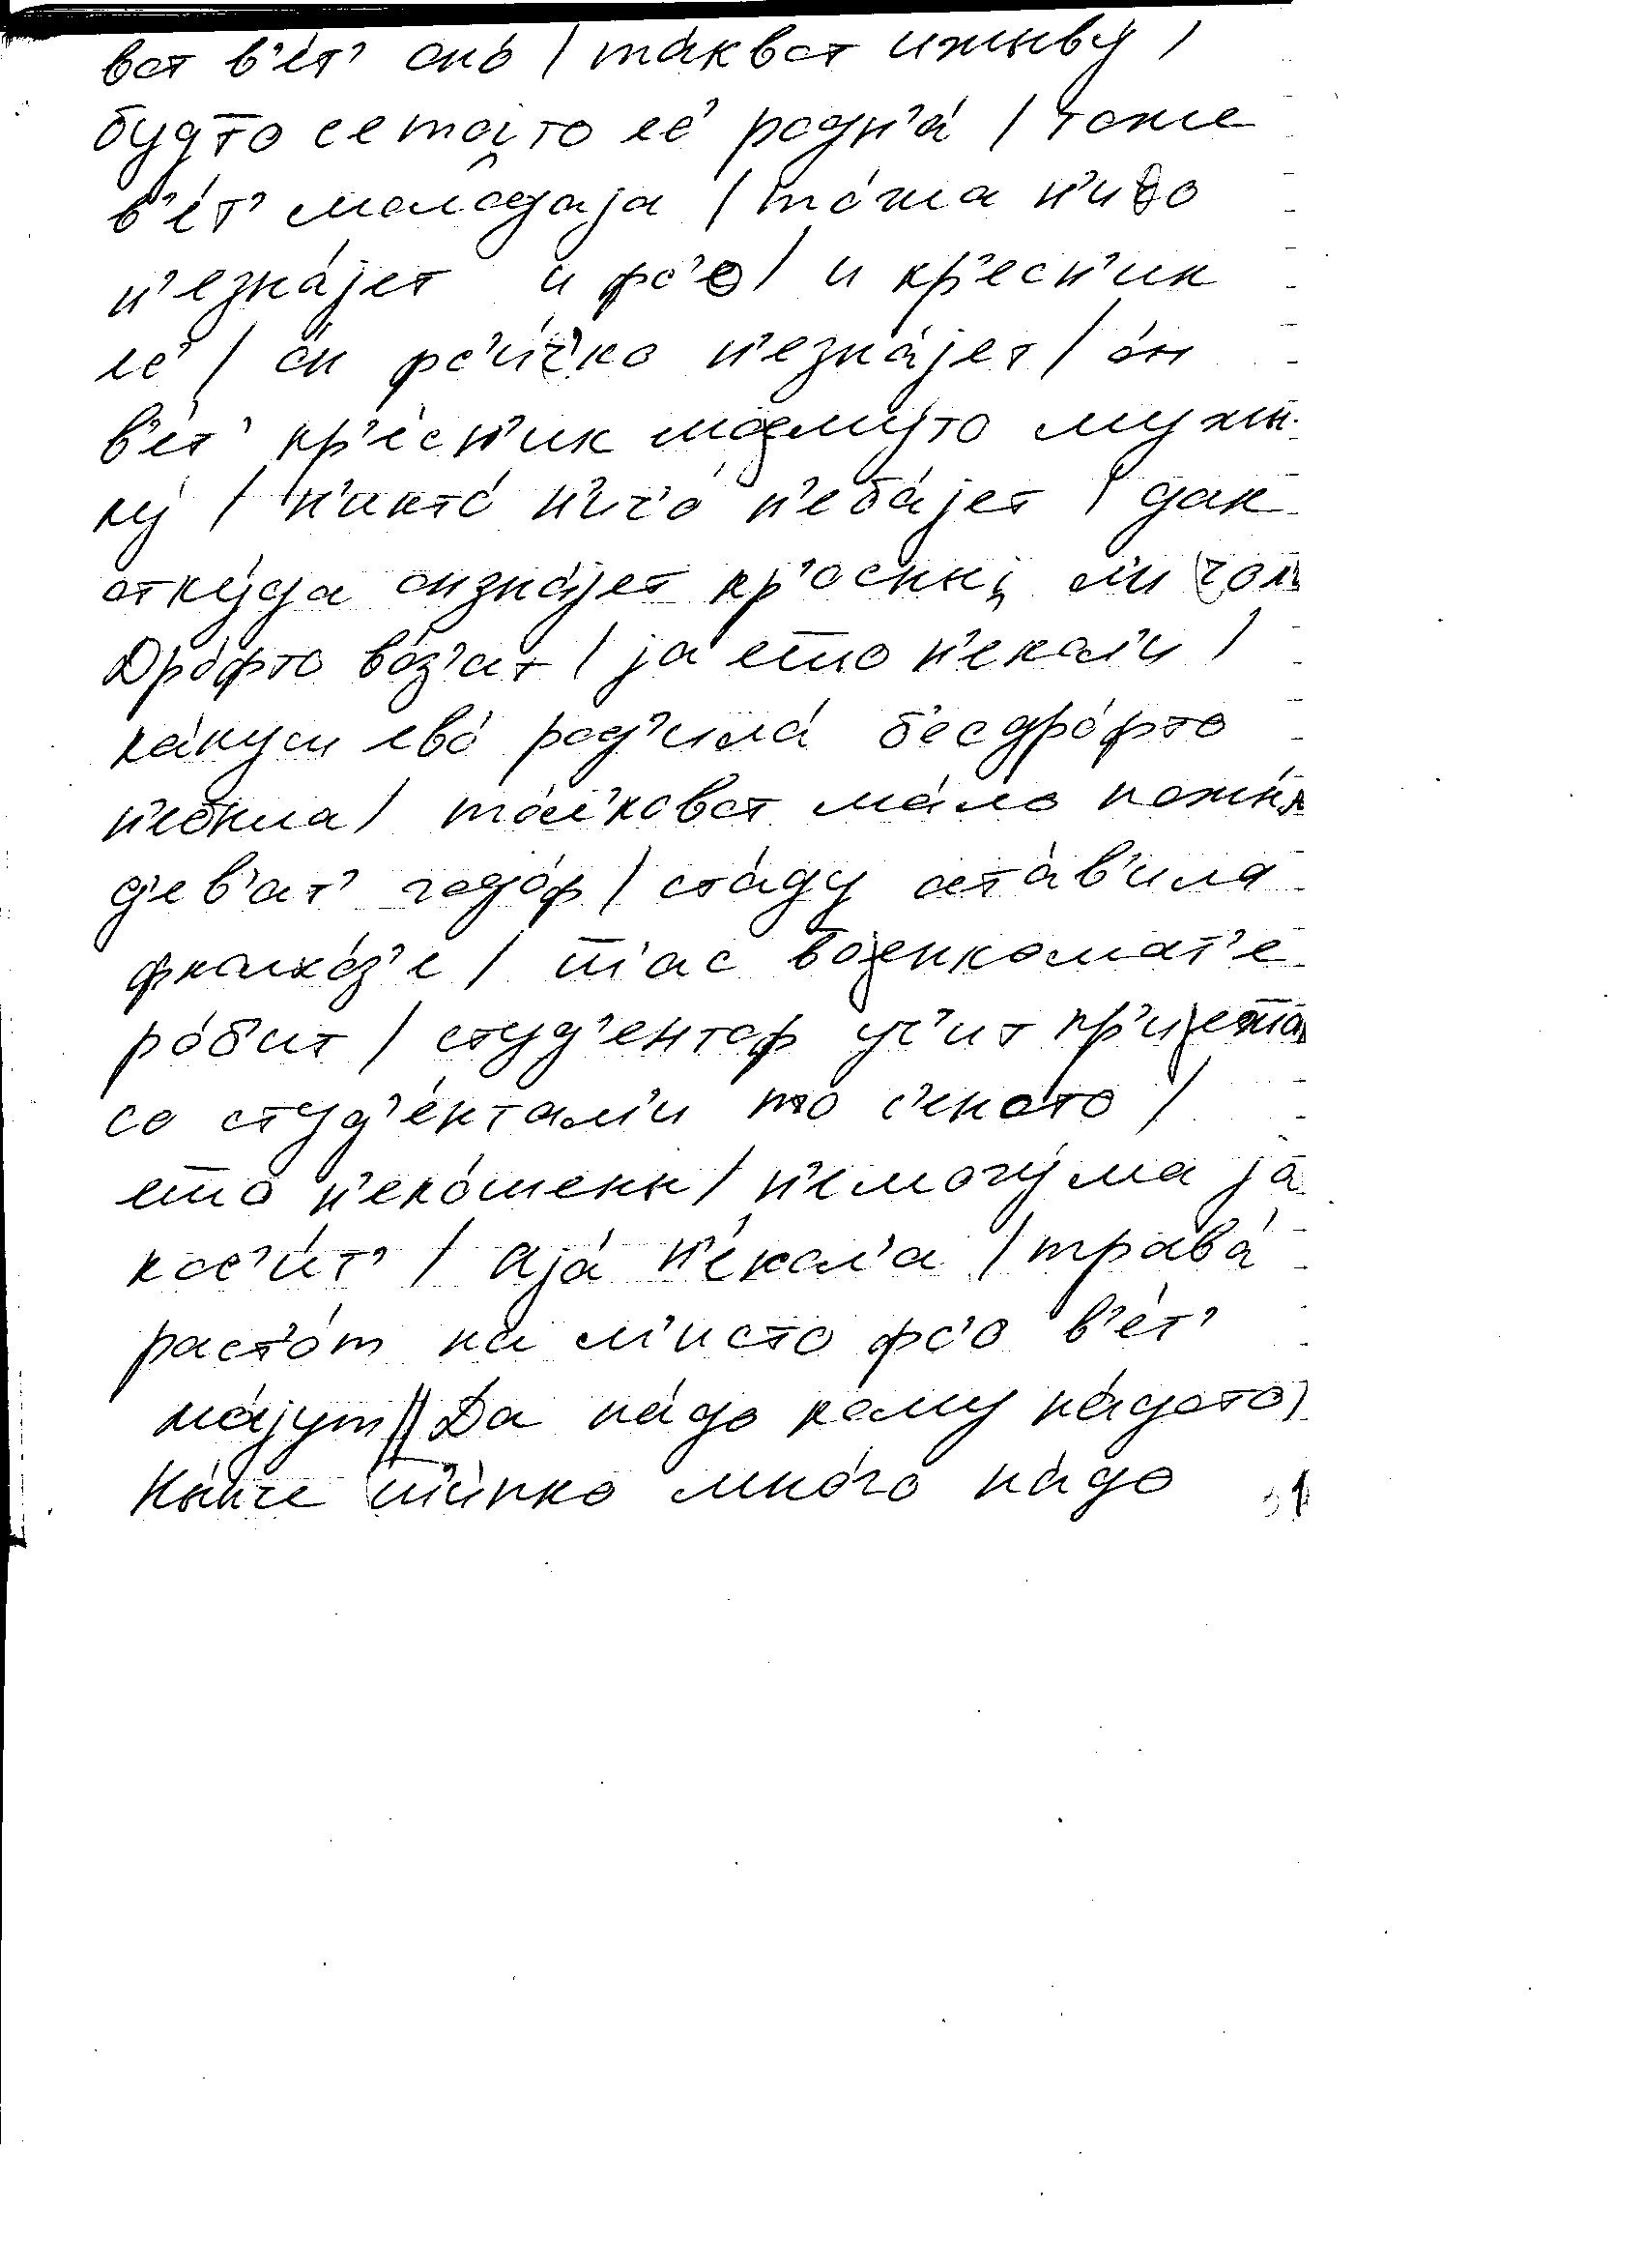 вот в'е́т' оно́ / та́квот ижыву́ /
будто сета́јто ее́ родн'а́ / тоже
в'е́т' моло̂даја / то́жа н'ичо
н'езна́јет и фс'о / и кр'ес'н'ик
ее́ / о́н фс'и́чко н'езна́јет / о́н
в'е́т' кр'е́с'н'ик моему́то мужы-
ку́ / н'икто́ н'ич'о́ н'еба́јет / дак
отку́да онзна́јет кр'осныј
Дро́фто во́з'ит / ја ето н'екол'и /
ка́куси ево́ род'ила́ б'ездро́фто
н'ебыла / то́л'ковот ма́ло пожыл
д'ев'ат' годо́ф / ста́ду ста́в'ила
фколхо́з'е / т'ас војенкомат'е
ро́б'ит / студ'ентоф уч'ит
со студ'е́нтам'и то с'еното /
ето н'еко́шены / н'емогу́ма ја
кос'и́т' / аја́ н'е́кол'а / трава́
раст'о́т на м'исто фс'о в'е́т'
ма́јут // Да на́до кому на́дото /
Ны́нче ши́пко мно́го на́до